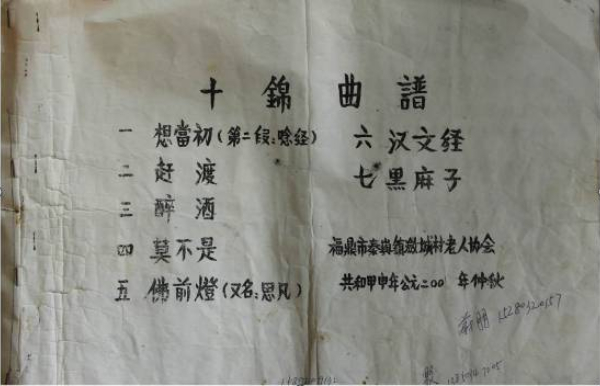 十錦曲譜
一 想當初(第二段:唸经)
二 赶渡
三 醉酒
四 莫不是
五 佛前燈(又名:思凡)
六 汉文経
七 黑麻子
福鼎市秦嶼鎮城村老人协会
共和甲申年公元二00 年仲秋